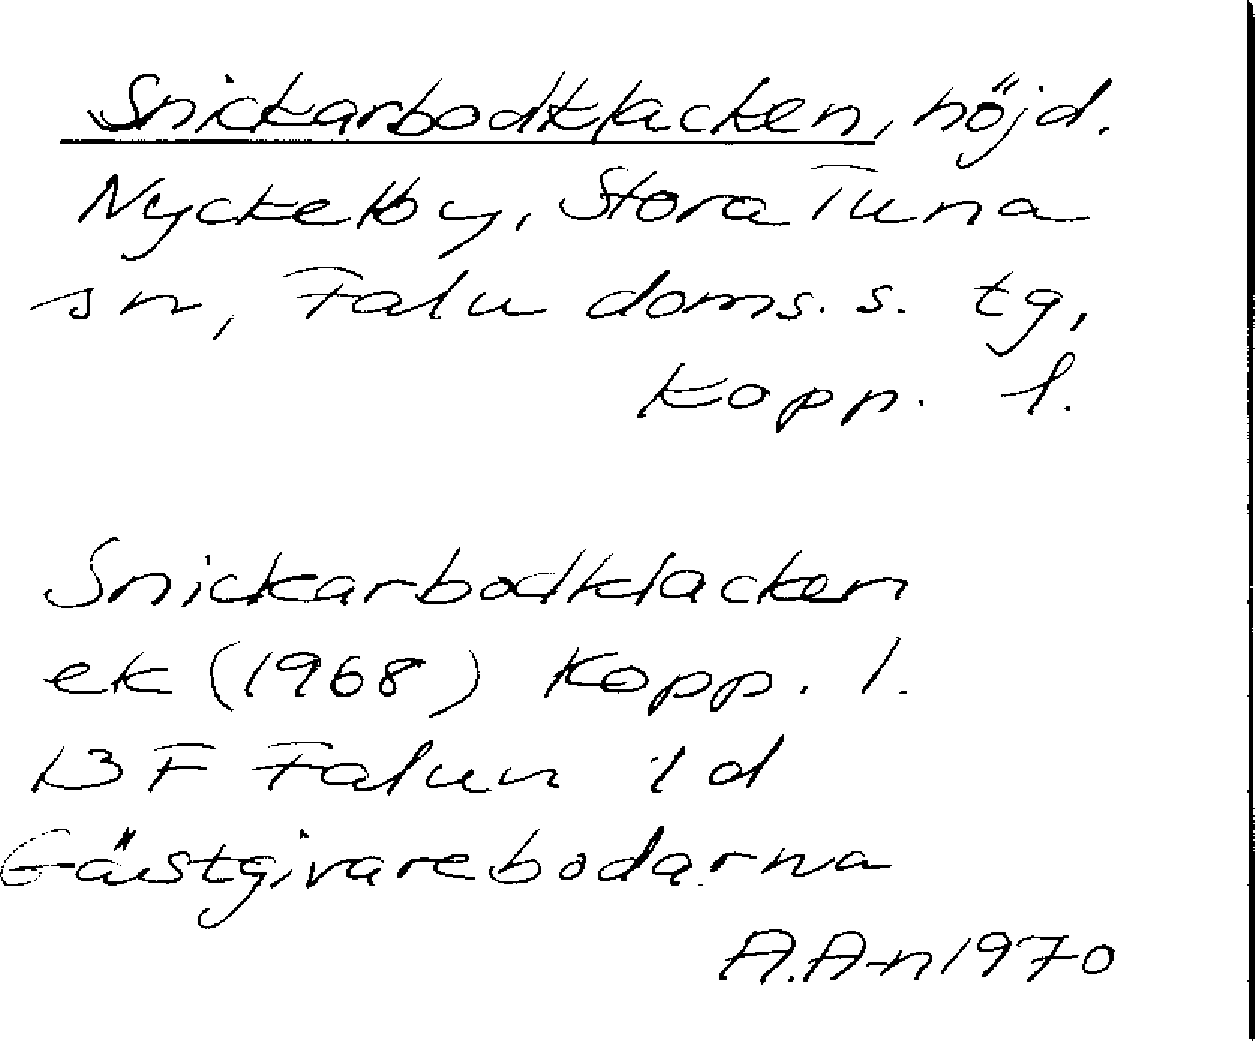 Snickarbodklacken, höjd.
Nyckelby, Stora Tuna
sn, Falu doms. s. tg,
Kopp. l.
Snickarbodklacken
ek (1968) Kopp. l.
13 F Falun 1 d
Gästgivarebodarna
A.A-n 1970